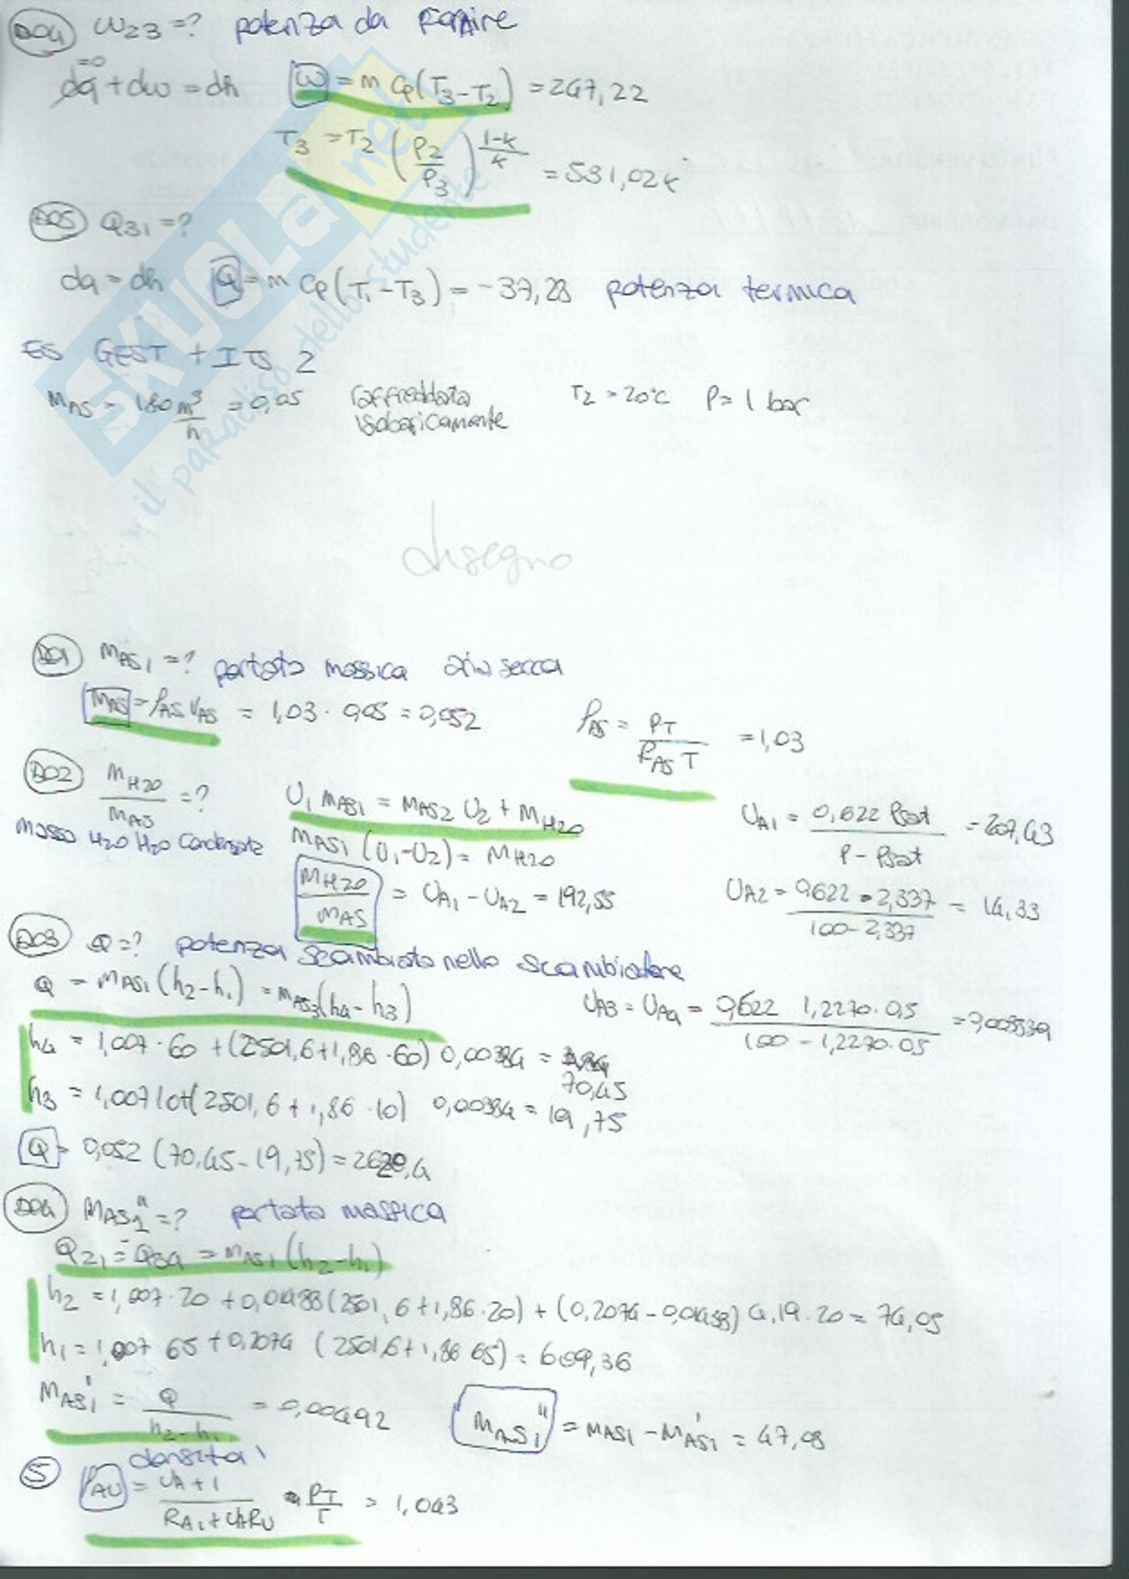 DO4 W23 = ? potenza da fornire
=0
dq + dw = dh W = m Cp (T3 - T2) = 247,22
T3 = T2 (P2/P3)^(1-k/k) = 531,02 K
DO5 Q31 = ?
dq = dh Q = m Cp (T1 - T3) = -37,28 potenza termica
ES GEST + ITS 2
MAS = 180 m³/h = 0,05 raffreddata isobaricamente T2 = 20°C P = 1 bar
disegno
DO1 MAS1 = ? portata massica aria secca
MAS = ρAS VAS = 1,03 · 0,05 = 0,052 ρAS = PT / RAS T = 1,03
DO2 MH2O / MAS = ? U1 MAS1 = MAS2 U2 + MH2O UA1 = 0,622 Psat / P - Psat = 207,43
massa H2O H2O condensata MAS1 (U1 - U2) = MH2O
MH2O / MAS = UA1 - UA2 = 192,55 UA2 = 0,622 · 2,337 / 100 - 2,337 = 14,33
DO3 Q = ? potenza scambiata nello scambiatore
Q = MAS1 (h2 - h1) = MAS3 (h4 - h3) UA3 = UA4 = 0,622 1,2270 · 0,5 / 100 - 1,2270 · 0,5
h4 = 1,007 · 60 + (2501,6 + 1,86 · 60) 0,00384 = 70,45
h3 = 1,007 10 + (2501,6 + 1,86 · 10) 0,00384 = 19,75
Q = 0,052 (70,45 - 19,75) =
DO4 MAS1" = ? portata massica
Q21 = -Q34 = MAS1 (h2 - h1)
h2 = 1,007 · 20 + 0,01488 (2501,6 + 1,86 · 20) + (0,2074 - 0,01488) 4,19 · 20 = 74,05
h1 = 1,007 65 + 0,2074 (2501,6 + 1,86 65) = 609,36
MAS1' = Q / h2 - h1 = 0,00492 MAS1" = MAS1 - MAS1' = 47,08
densità
5 ρAU = UA + 1 / RA1 + UARU · PT / T = 1,043
SKUOLA.net
il paradiso dello studente